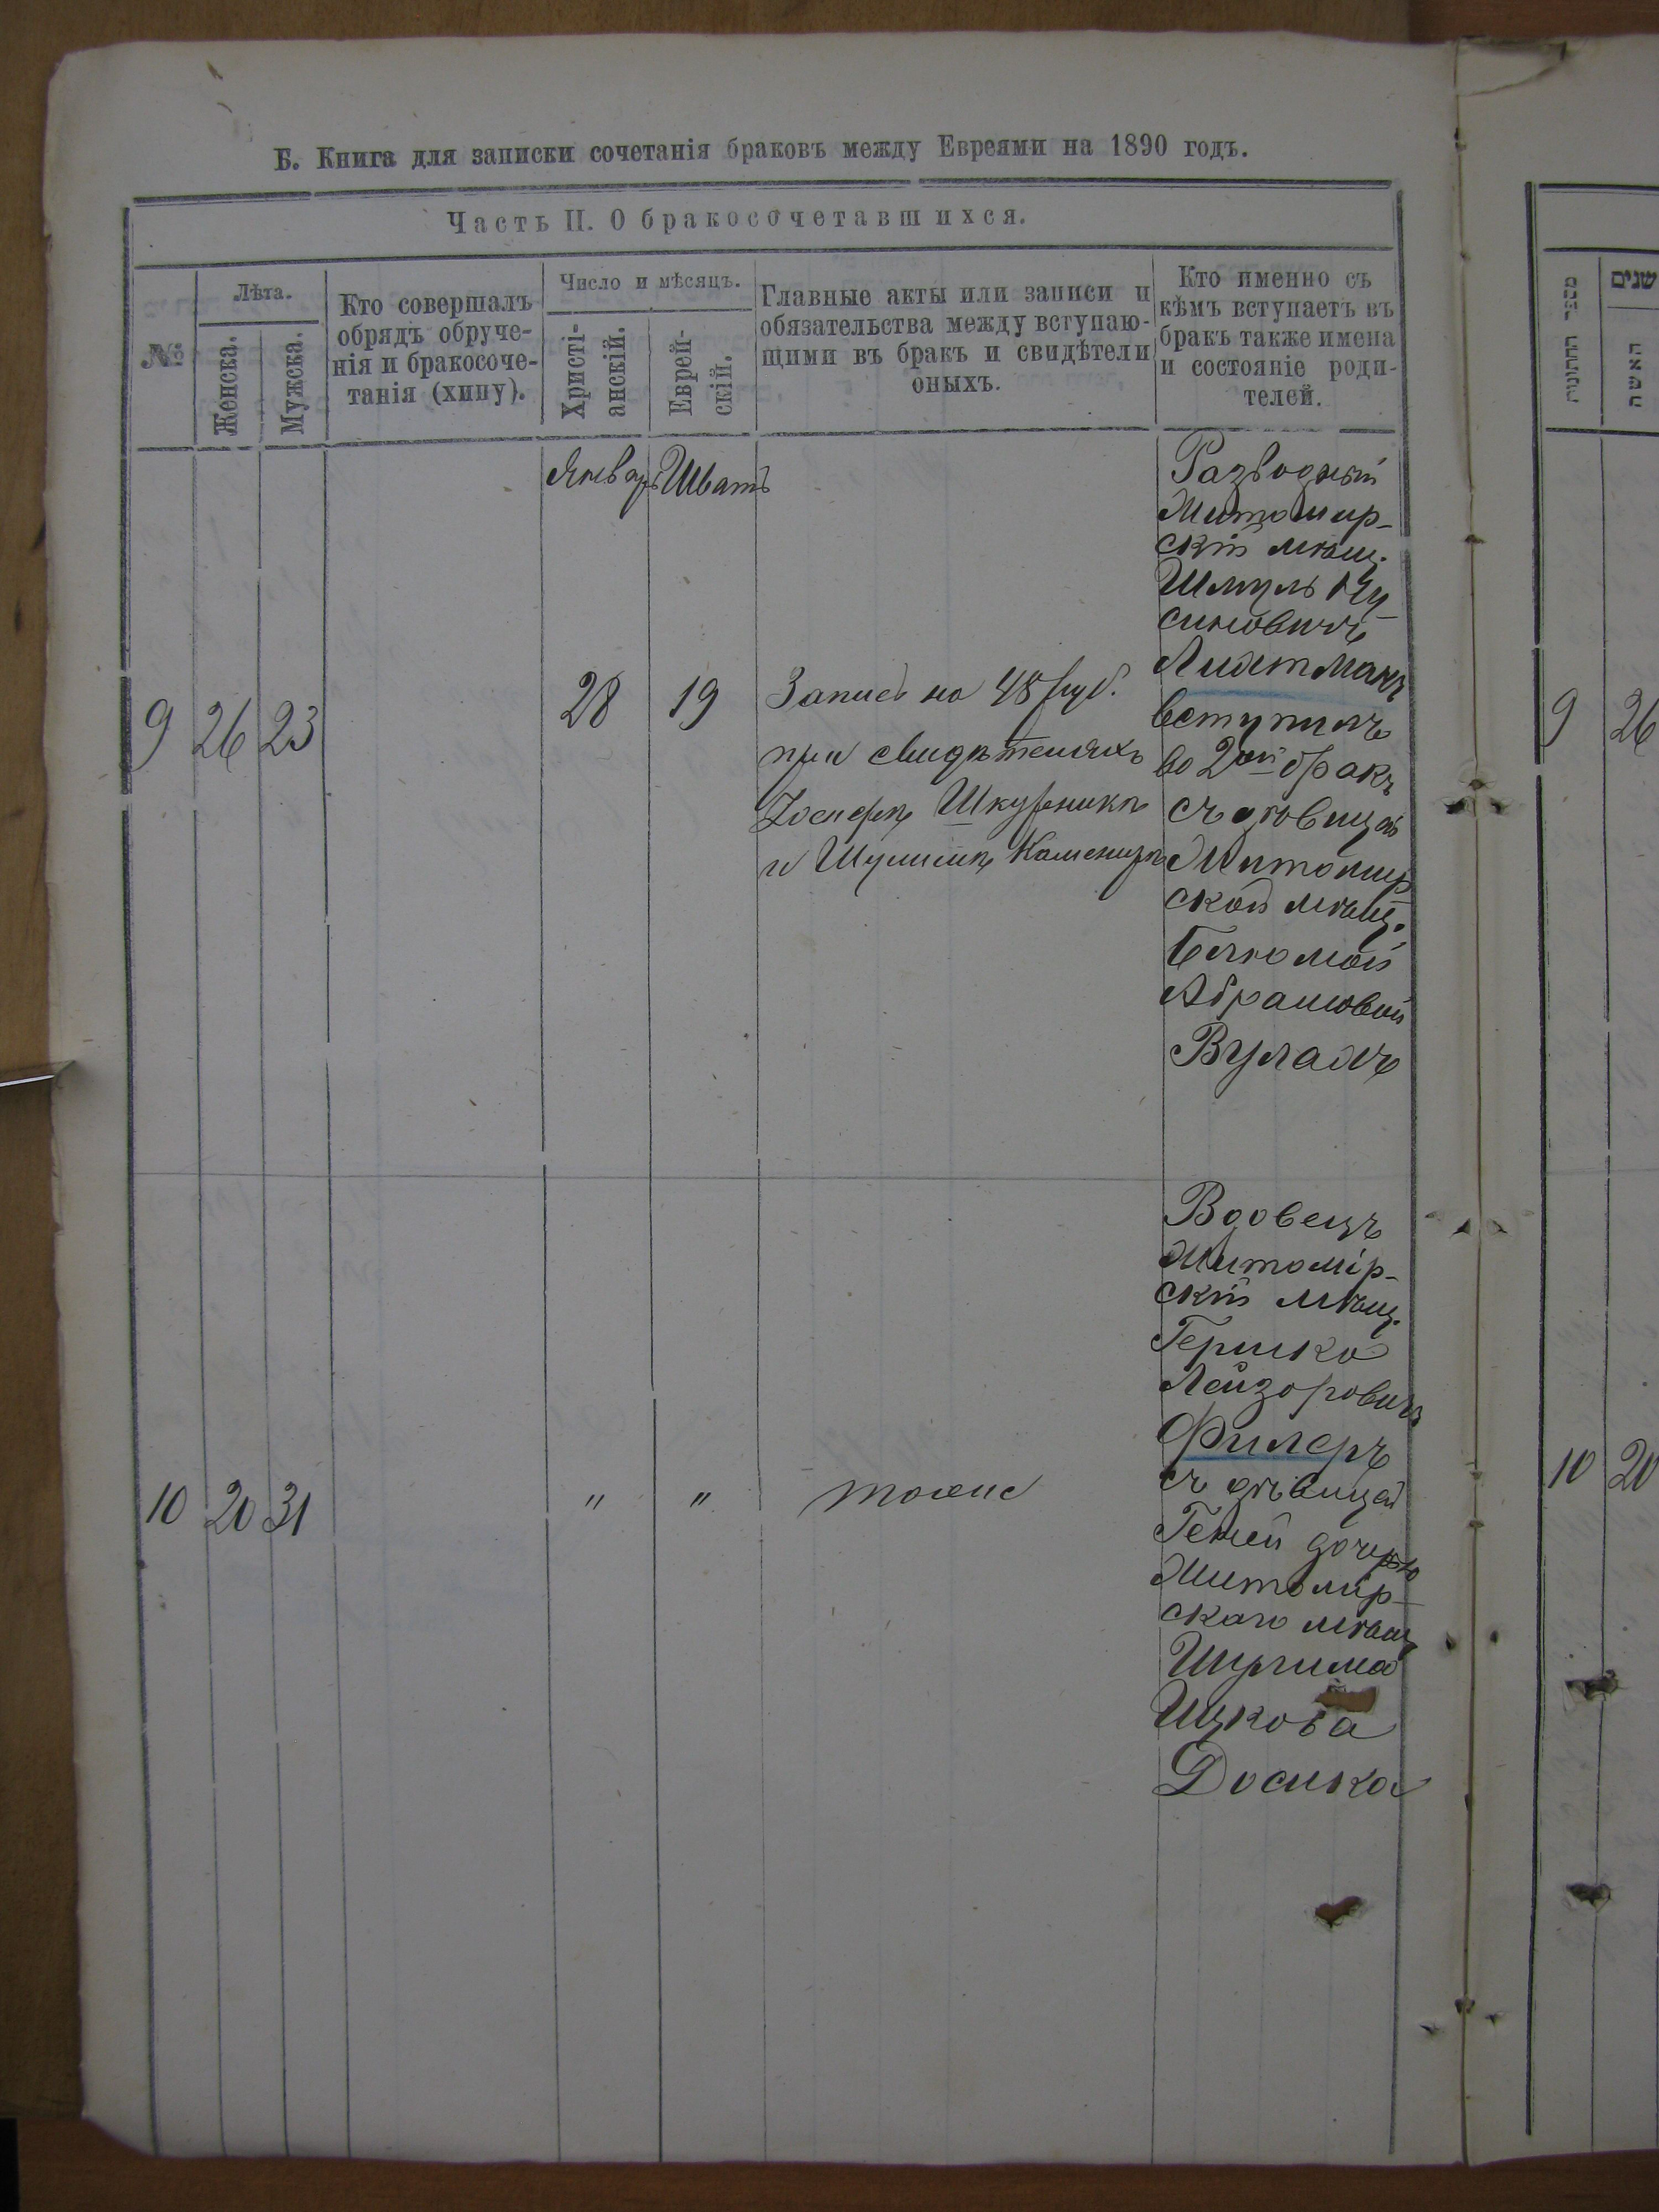 Б. Книга для записки сочетанія браковъ между Евреями на 1890 годъ.
Часть II. О бракосочетавшихся.
№
Лѣта.
Женска.
Мужска.
Кто совершалъ
обрядъ обруче-
нія и бракосоче-
танія (хипу).
Число и мѣсяцъ.
Христі-
анскій.
Еврей-
скій.
Главные акты или записи и
обязательства между вступаю-
щими въ бракъ и свидѣтели
оныхъ.
Кто именно съ
кѣмъ вступаетъ въ
бракъ также имена
и состояніе роди-
телей.
Январь
Шватъ
9
26
23
28
19
Запись на 48 руб.
при свидѣтеляхъ
Іосифѣ Шкурникѣ
и Шулимѣ
Разводный
Житомир-
скій мѣщ.
Шмуль Ну-
синовичъ
вступилъ
во 2ой бракъ
съ дѣвицей
Житомир
ской мѣщ.
Блюмой
Абрамовой
Вулахъ
10
20
31
"
"
тоже
Вдовецъ
Житомір-
скій мѣщ.
Гершко
Лейзоровичъ
Филеръ
съ дѣвицей
Геней дочерью
Житомір-
скаго мѣщ
Шулима
Ицкова
9
26
10
20
מספר החתונות
שנים
האשה